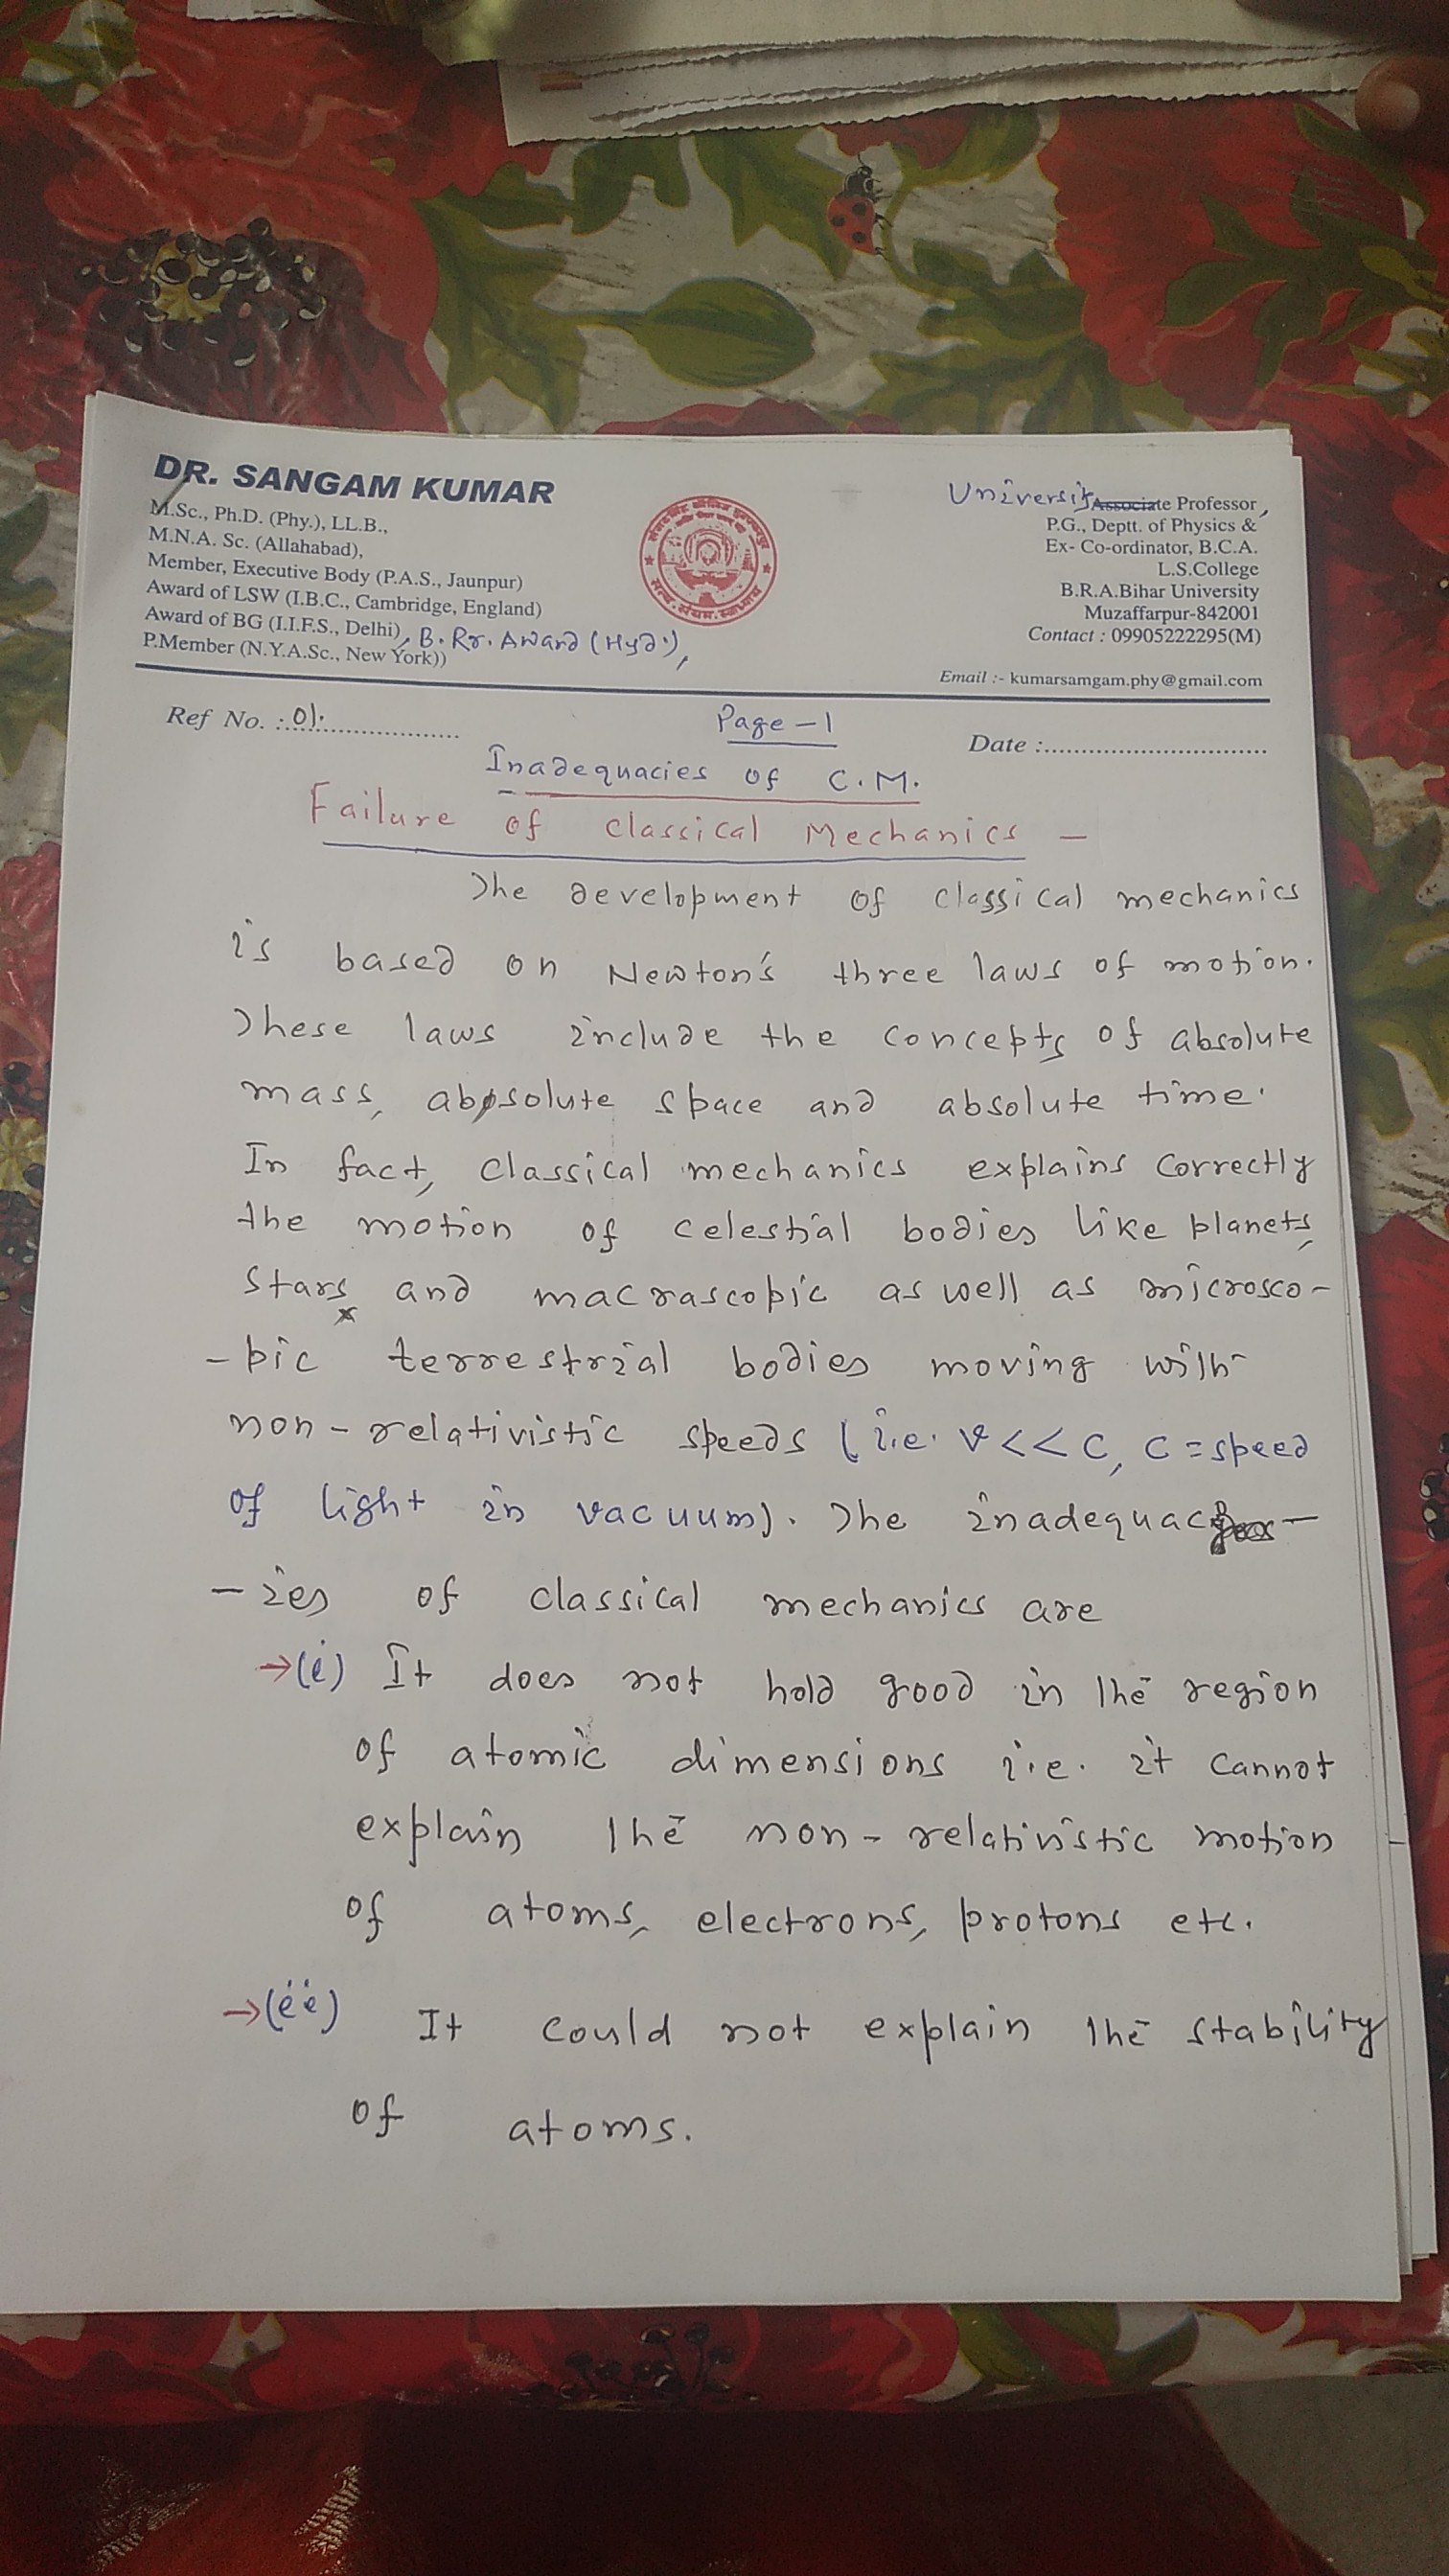 DR. SANGAM KUMAR
M.Sc., Ph.D. (Phy.), LL.B.,
M.N.A. Sc. (Allahabad),
Member, Executive Body (P.A.S., Jaunpur)
Award of LSW (I.B.C., Cambridge, England)
Award of BG (I.I.F.S., Delhi), B. Rr. Award (Hyd.),
P.Member (N.Y.A.Sc., New York))
University Associate Professor,
P.G., Deptt. of Physics &
Ex- Co-ordinator, B.C.A.
L.S.College
B.R.A.Bihar University
Muzaffarpur-842001
Contact : 09905222295(M)
Email :- kumarsamgam.phy@gmail.com
Ref No. : 01.
Page-1
Date :
Inadequacies of C.M.
Failure of classical Mechanics -
The development of classical mechanics
is based on Newton's three laws of motion.
These laws include the concepts of absolute
mass, absolute space and absolute time.
In fact, classical mechanics explains correctly
the motion of celestial bodies like planets,
stars and macrascopic as well as microsco-
-pic terrestrial bodies moving with
non-relativistic speeds (i.e. v<<c, c=speed
of light in vacuum). The inadequac-
-ies of classical mechanics are
→(i) It does not hold good in the region
of atomic dimensions i.e. it cannot
explain the non-relativistic motion
of atoms, electrons, protons etc.
→(ii) It could not explain the stability
of atoms.